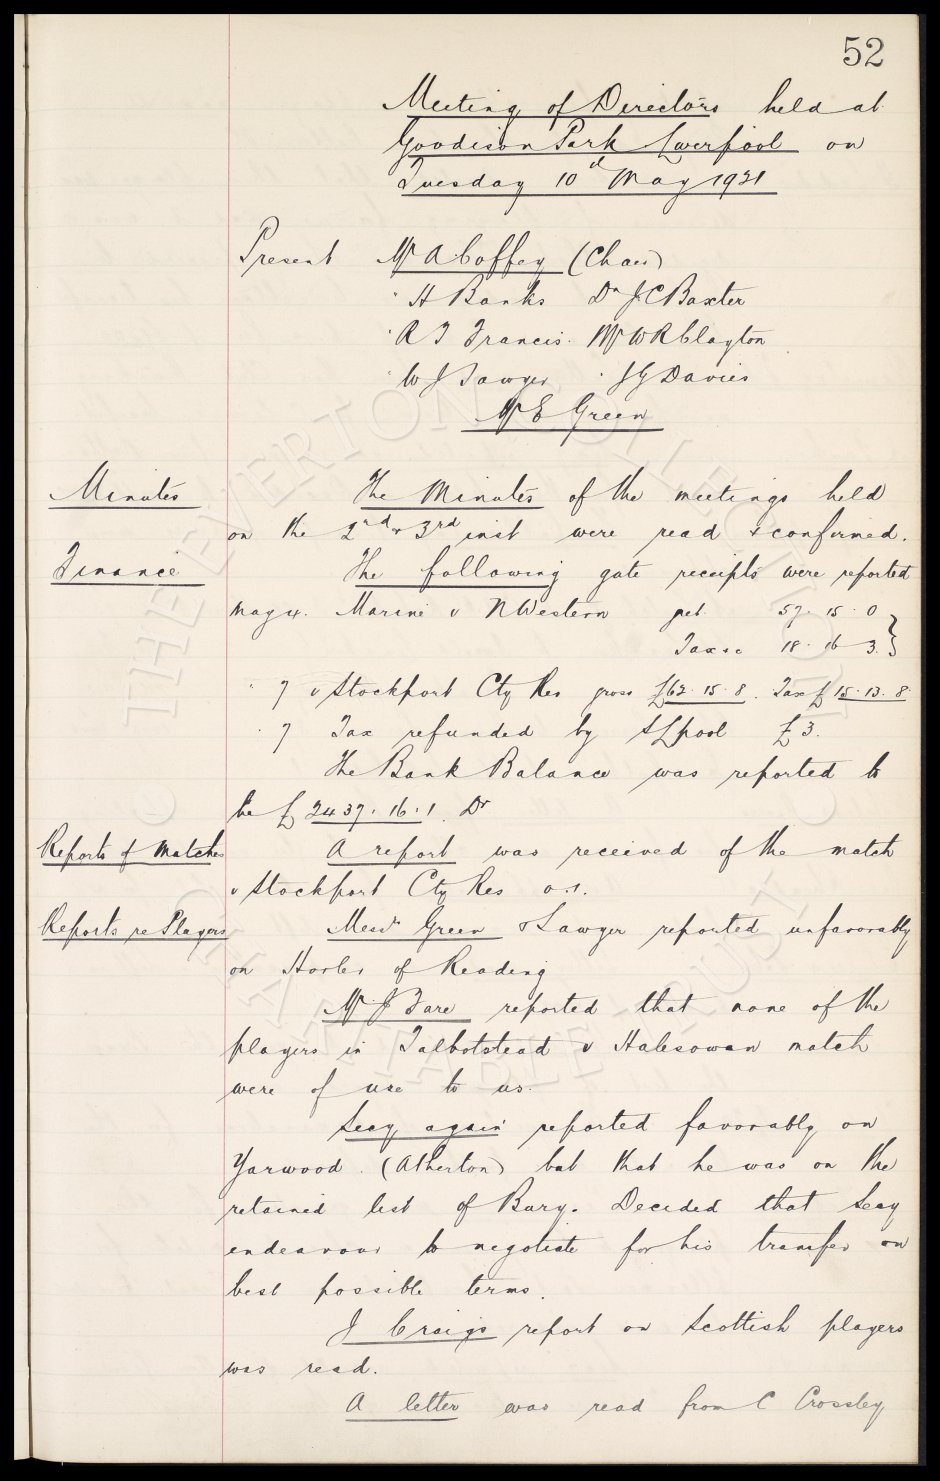 52
Meeting of Directors held at
Goodison Park Liverpool on
Tuesday 10th May 1921
Present Mr A Coffey (Chair)
" H Banks Dr J C Baxter
" A T Francis. Mr W R Clayton
" W J Sawyer " J G Davies
Mr E Green
Minutes The Minutes of the meetings held
on the 2nd & 3rd inst were read & confirmed.
Finance The following gate receipts were reported
May 4. Marine v N Western net 57. 15. 0
Taxes 18. 16 3. }
" 7 v Stockport Cty Res gross £62. 15. 8. Tax £15. 13. 8.
" 7 Tax refunded by S Lpool £3.
The Bank Balance was reported to
be £2437. 16. 1. Dr
Reports of Matches A report was received of the match
v Stockport Cty Res 0.1.
Reports re Players Messrs Green & Sawyer reported unfavorably
on of Reading
Mr J Fare reported that none of the
players in Talbotstead v Halesowen match
were of use to us.
Secy again reported favorably on
Yarwood. (Atherton) but that he was on the
retained list of Bury. Decided that Secy
endeavour to negotiate for his transfer on
best possible terms.
J Craigs report on Scottish players
was read.
A letter was read from C Crossley
© THE EVERTON COLLECTION CHARITABLE TRUST